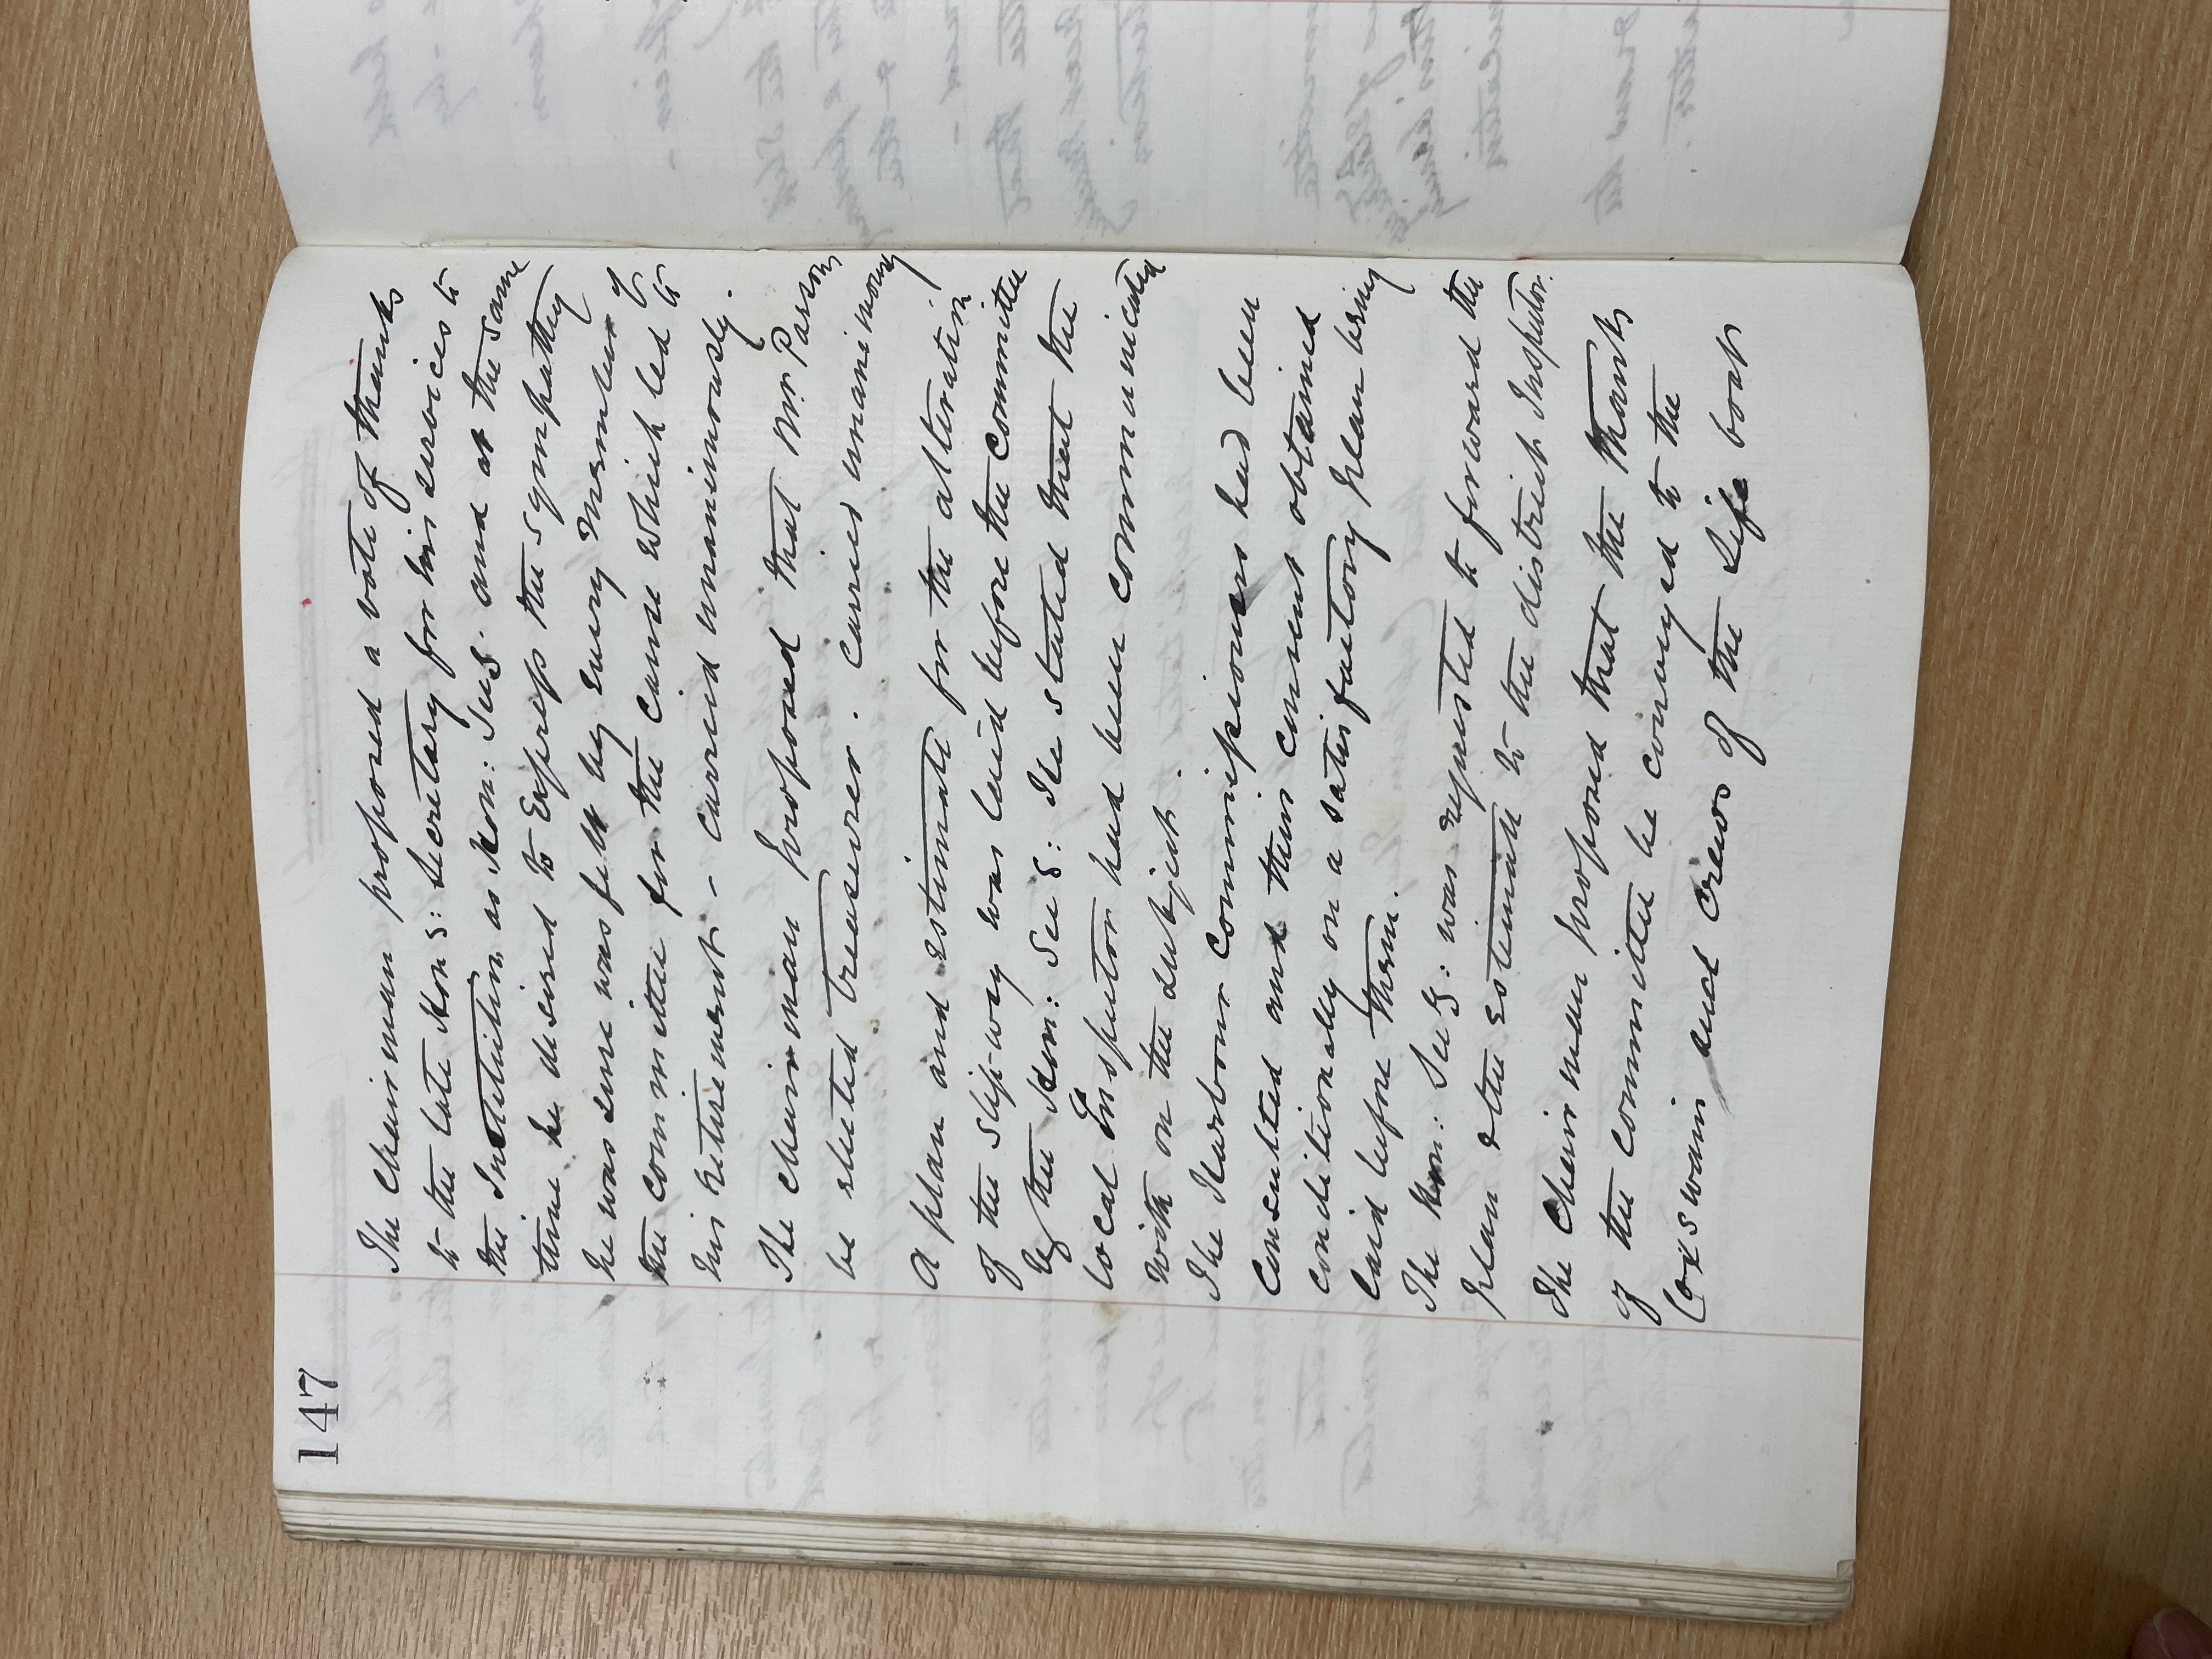 147
The Chairman proposed a vote of thanks
to the late Hon S: Secretary for his services to
the Institution as Hon: Secy. and at the same
time he desired to Express the sympathy
he was sure was felt by Every Member of
the Committee for the Cause which led to
his retirement - carried unanimously.
The Chairman proposed that Mr. Parsons
be elected treasurer. Carried unanimously
A plan and estimate for the alteration
of the slip-way was laid before the Committee
by the Hon: Secy: He stated that the
local Inspector had been communicated
with on the subject.
The Harbour Commissioners had been
Consulted and their consent obtained
conditionally on a satisfactory plan being
laid before them.
The Hon: Secy: was requested to forward the
plan & the estimate to the district Inspector.
The Chairman proposed that the thanks
of the Committee be conveyed to the
Coxswain and Crews of the Life boat